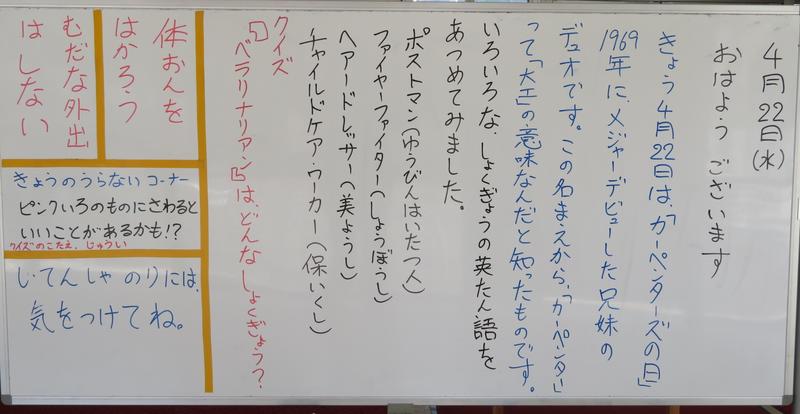 4月22日(水)
おはよう ございます
きょう4月22日は、「カーペンターズの日」
1969年に、メジャーデビューした兄妹の
デュオです。この名まえから、「カーペンター」
って「大工」の意味なんだと知ったものです。
いろいろな、しょくぎょうの英たん語を
あつめてみました。
ポストマン(ゆうびんはいたつ人)
ファイヤーファイター(しょうぼうし)
ヘアードレッサー(美ようし)
チャイルドケア・ワーカー(保いくし)
クイズ
「ベラリナリアン」は、どんなしょくぎょう?
体おんを
はかろう
むだな外出
はしない
きょうのうらないコーナー
ピンクいろのものにさわると
いいことがあるかも!?
クイズのこたえ、じゅうい
じてんしゃのりには、
気をつけてね。